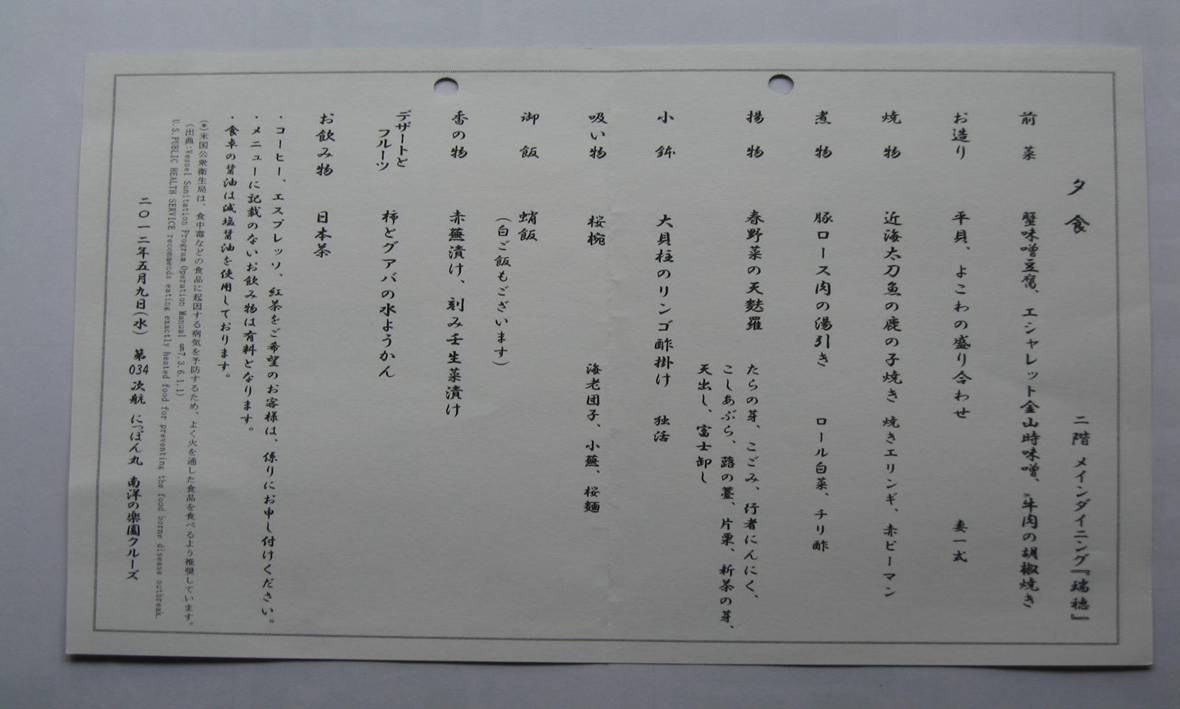 夕食　二階 メインダイニング『瑞穂』
前菜　蟹味噌豆腐、エシャレット金山時味噌、*牛肉の胡椒焼き
お造り　平貝、よこわの盛り合わせ　妻一式
焼物　近海太刀魚の鹿の子焼き　焼きエリンギ、赤ピーマン
煮物　豚ロース肉の湯引き　ロール白菜、チリ酢
揚物　春野菜の天麩羅　たらの芽、こごみ、行者にんにく、
こしあぶら、蕗の薹、片栗、新茶の芽、
天出し、富士卸し
小鉢　大貝柱のリンゴ酢掛け　独活
吸い物　桜椀　海老団子、小蕪、桜麺
御飯　蛸飯
（白ご飯もございます）
香の物　赤蕪漬け、刻み壬生菜漬け
デザートと
フルーツ　柿とグァバの水ようかん
お飲み物　日本茶
・コーヒー、エスプレッソ、紅茶をご希望のお客様は、係りにお申し付けください。
・メニューに記載のないお飲み物は有料となります。
・食卓の醤油は減塩醤油を使用しております。
(*)米国公衆衛生局は、食中毒などの食品に起因する病気を予防するため、よく火を通した食品を食べるよう推奨しています。
(出典:Vessel Sanitation Program Operation Manual 7.3.6.1.1)
U.S.PUBLIC HEALTH SERVICE recommends eating exactly heated food for preventing the food borne disease outbreak.
二〇一二年五月九日(水)　第034次航　にっぽん丸　南洋の楽園クルーズ